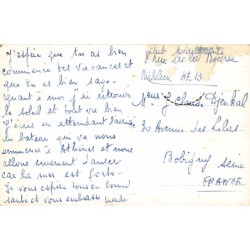 J'espère que tu as bien
commencé tes vacances et
que tu es bien sage.
quant à moi j'ai retrouvé
le soleil et tout va bien
en attendant
du bateau qui va nous
emmener à Athènes et nous
allons surement danser
car la mer est forte.
Je vous espère tous en bonne
santé et vous embrasse
rue de la Bourse
J. Claude
30 Avenue des Lilas
Bobigny Seine
FRANCE